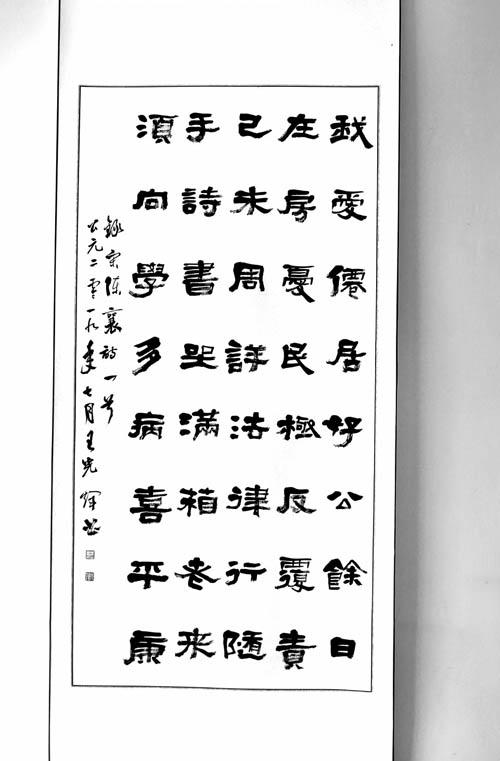 我愛僊居好公餘日
在房憂民極反覆責
己未周詳法律行隨
手詩書坐滿箱老来
須向學多病喜平康
錄宋陳襄詩一首
公元二零一九年七月王光輝書